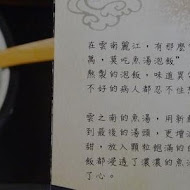 在雲南麗江，有那麼
萬，莫吃魚湯泡飯”
熬製的泡飯，味道異
不好的病人都忍不住
雲之南的魚湯，用新
到最後的湯頭，更增
甜，放入顆粒飽滿的
飯都浸透了濃濃的魚
了心。